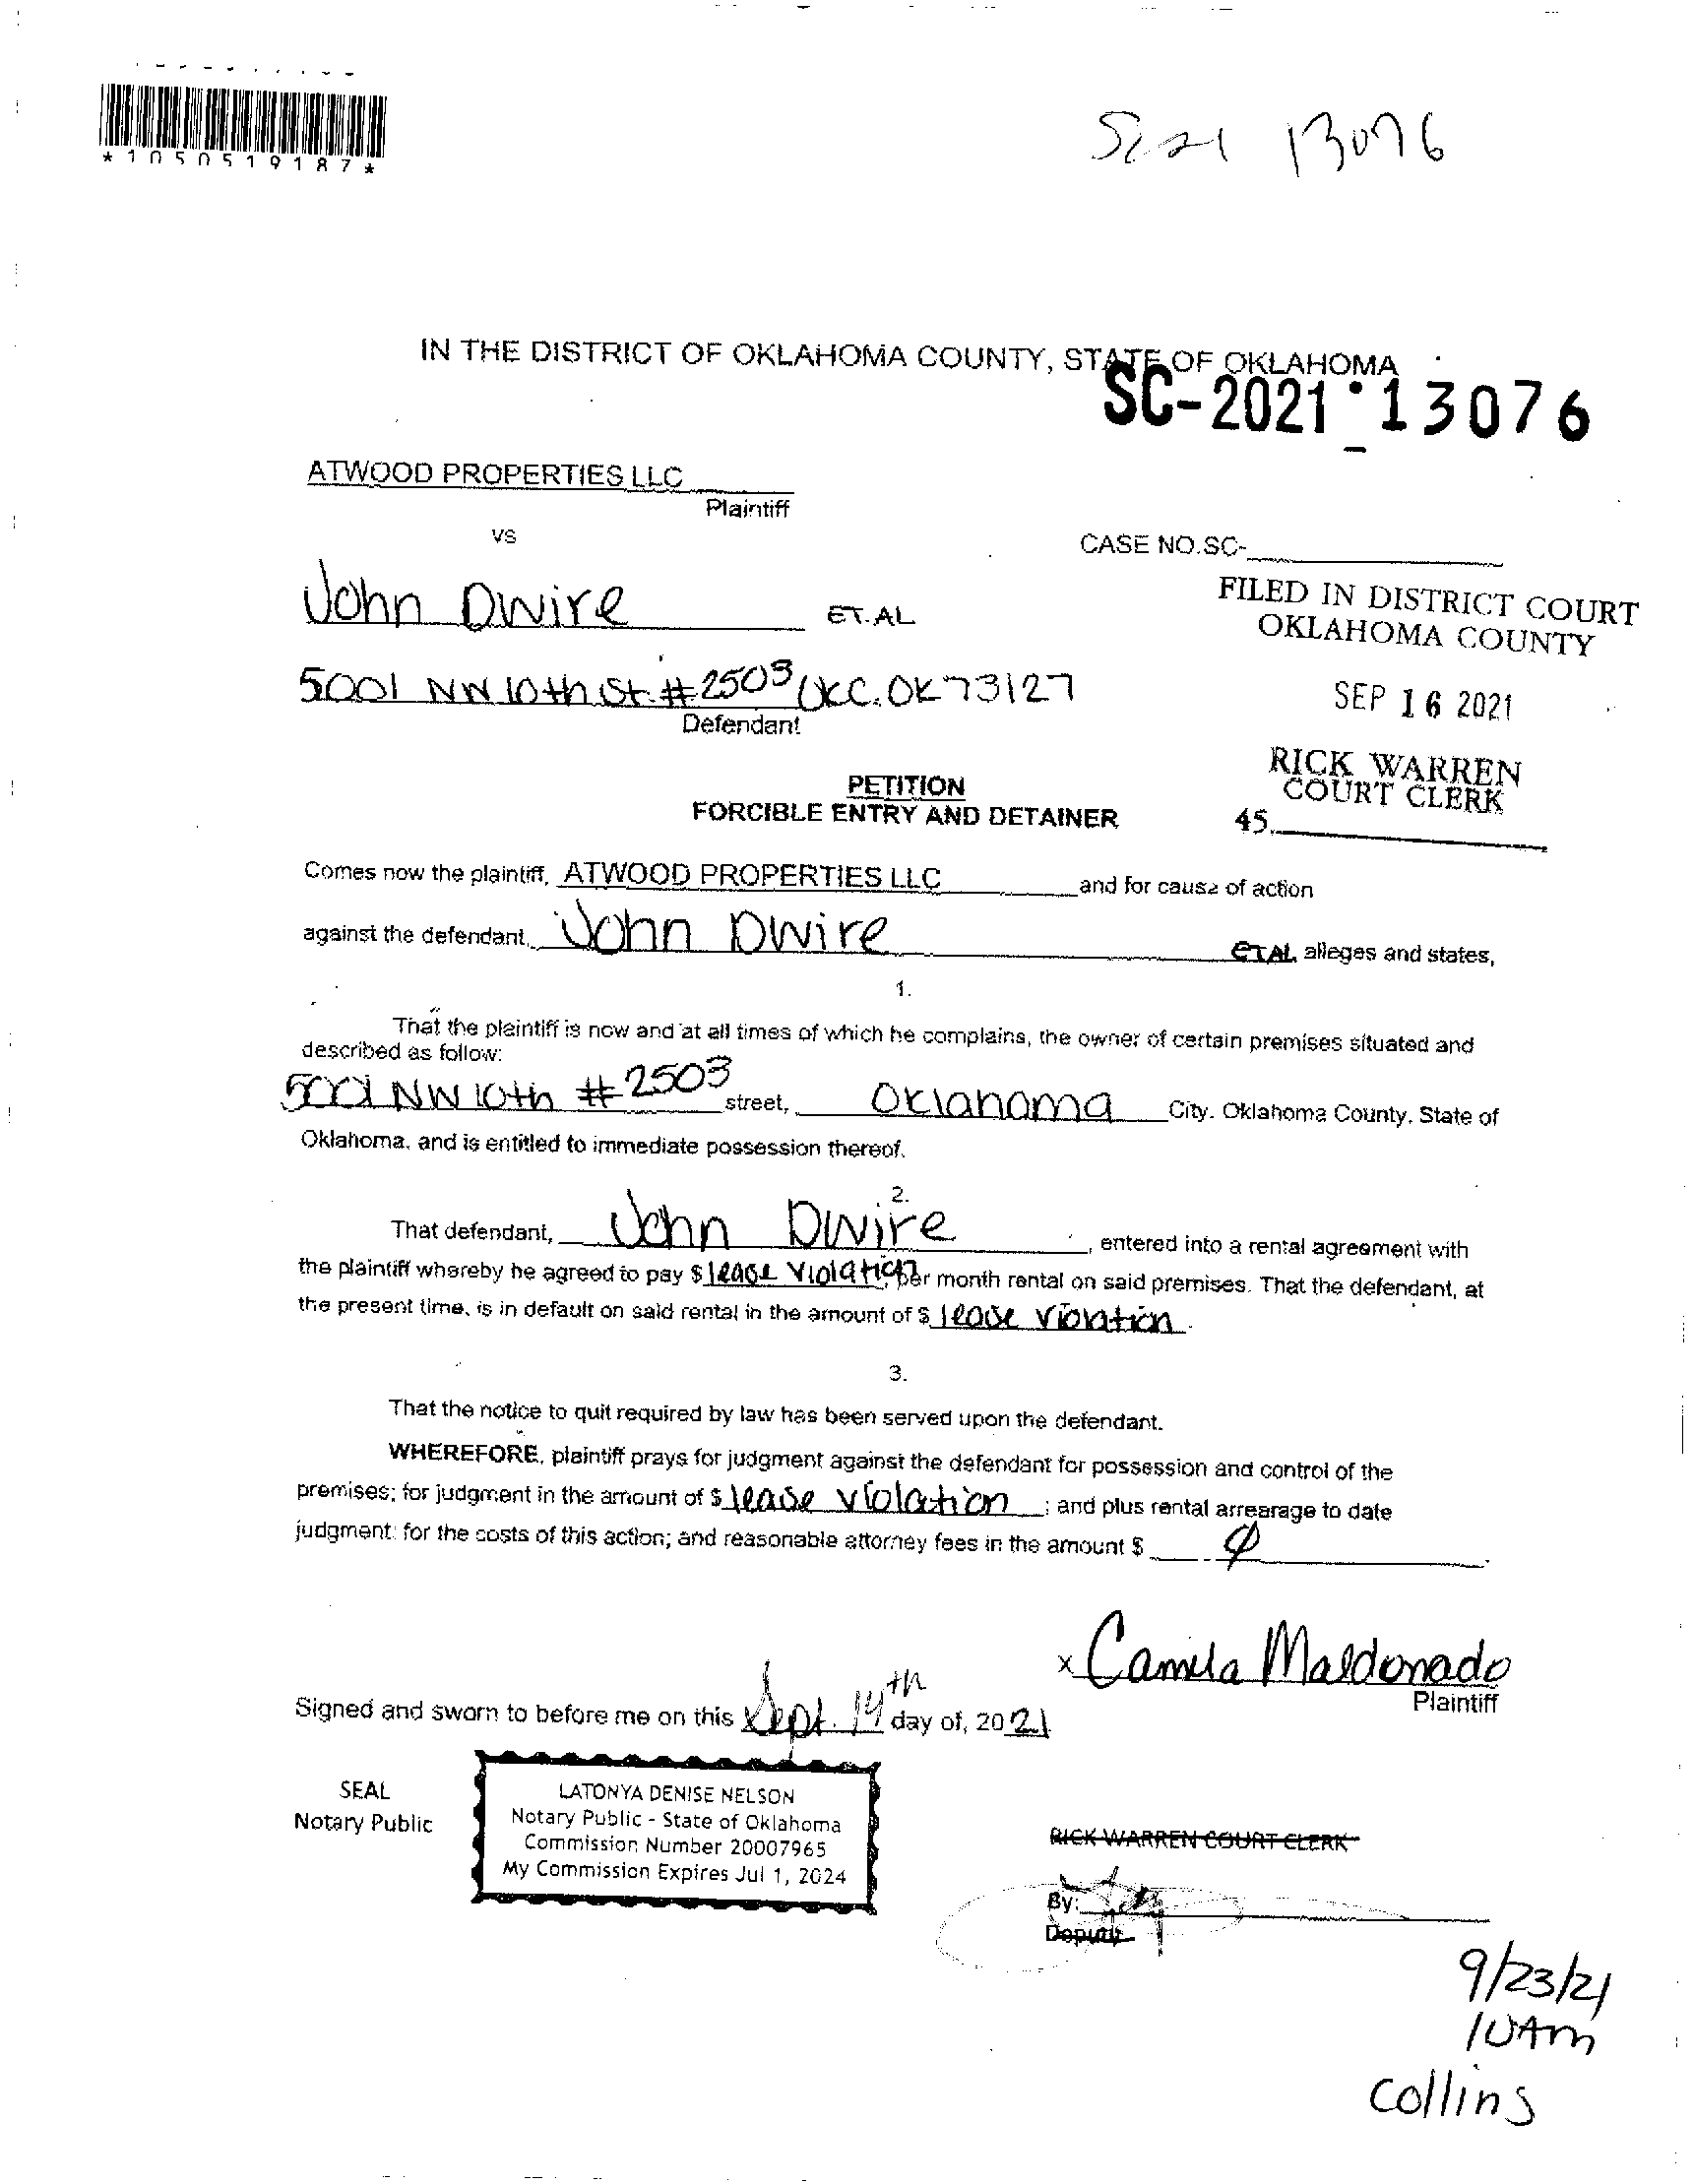 *1050519187*
13076
IN THE DISTRICT OF OKLAHOMA COUNTY, STATE OF OKLAHOMA
SC-2021 13076
ATWOOD PROPERTIES LLC
Plaintiff
vs
CASE NO.SC-
John Dwire ET.AL
FILED IN DISTRICT COURT
OKLAHOMA COUNTY
5001 NW 10th St. #2503 OKC. OK 73127
Defendant
SEP 16 2021
RICK WARREN
COURT CLERK
45
PETITION
FORCIBLE ENTRY AND DETAINER
Comes now the plaintiff, ATWOOD PROPERTIES LLC and for cause of action
against the defendant, John Dwire ETAL alleges and states,
1.
That the plaintiff is now and at all times of which he complains, the owner of certain premises situated and
described as follow:
5001 NW 10th #2503 street, Oklahoma City. Oklahoma County, State of
Oklahoma, and is entitled to immediate possession thereof.
2.
That defendant, John Dwire, entered into a rental agreement with
the plaintiff whereby he agreed to pay $ lease violation per month rental on said premises. That the defendant, at
the present time, is in default on said rental in the amount of $ lease violation.
3.
That the notice to quit required by law has been served upon the defendant.
WHEREFORE, plaintiff prays for judgment against the defendant for possession and control of the
premises; for judgment in the amount of $ lease violation; and plus rental arrearage to date
judgment: for the costs of this action; and reasonable attorney fees in the amount $ ∅
x Camila Maldonado
Plaintiff
Signed and sworn to before me on this Sept. 14th day of, 2021
SEAL
Notary Public
LATONYA DENISE NELSON
Notary Public - State of Oklahoma
Commission Number 20007965
My Commission Expires Jul 1, 2024
RICK WARREN COURT CLERK
By:
Deputy
9/23/21
10Am
Collins